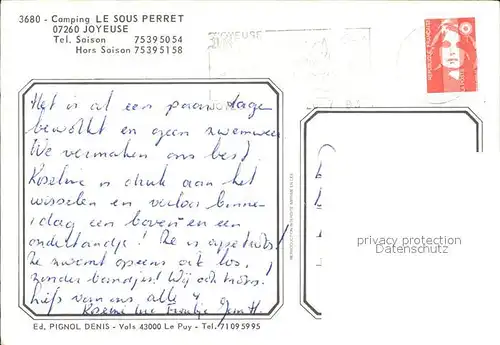 3680 - Camping LE SOUS PERRET
07260 JOYEUSE
Tel. Saison 75395054
Hors Saison 75395158
JOYEUSE
RÉPUBLIQUE FRANÇAISE
Het is al een paar dagen
bewolkt en geen zwemweer
We vermaken ons best.
Roseline is druk aan het
wisselen en verloor binnen
1 dag een boven en een
ondertandje! Ze is apetrots!
Ze zwemt opeens ook los,
zonder bandjes! Wij ook trots!
Liefs van ons alle 4
Luc
privacy protection
Datenschutz
Ed. PIGNOL DENIS - Vals 43000 Le Puy - Tel. 71095995